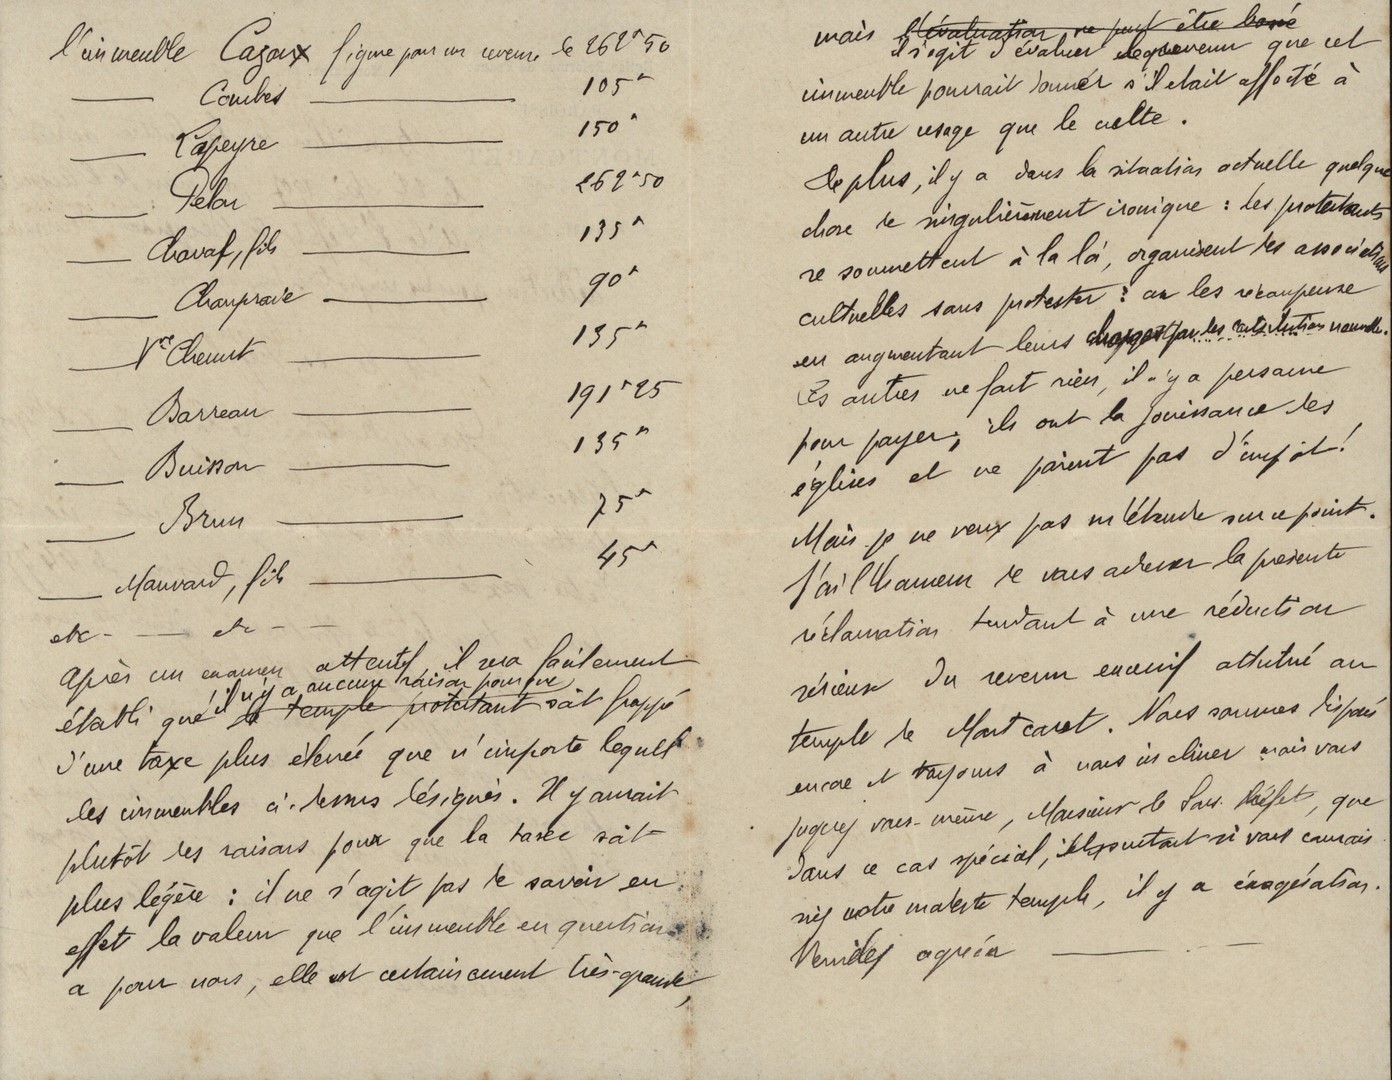 l'immeuble Cazaux figure pour un revenu de 262f50
—— Combes —— 105f
—— Lapeyre —— 150f
—— Pelou —— 262f50
—— Chavaf, fils —— 135f
—— Champraie —— 90f
—— Vve Chemit —— 135f
—— Barreau —— 191f25
—— Buisson —— 135f
—— Brun —— 75f
—— Mauvard, fils —— 45f
etc - —— etc - —
après un examen attentif, il sera facilement
établi que il n'y a aucune raison pour que
le temple protestant soit frappé
d'une taxe plus élevée que n'importe lequel
des immeubles ci-dessus désignés. Il y aurait
plutôt des raisons pour que la taxe soit
plus légère : il ne s'agit pas de savoir en
effet la valeur que l'immeuble en question
a pour nous, elle est certainement très-grande,
mais l'évaluation ne peut être basée
il s'agit d'évaluer le revenu que cet
immeuble pourrait donner s'il était affecté à
un autre usage que le culte.
De plus, il y a dans la situation actuelle quelque
chose de singulièrement ironique : les protestants
se soumettent à la loi, organisent des associations
cultuelles sans protester : on les récompense
en augmentant leurs charges par des contributions nouvelles.
Les autres ne font rien, il n'y a personne
pour payer, ils ont la jouissance des
églises et ne paient pas d'impôt !
Mais je ne veux pas m'étendre sur ce point.
J'ai l'honneur de vous adresser la présente
réclamation tendant à une réduction
sérieuse du revenu excessif attribué au
temple de Montcaret. Nous sommes disposés
encore et toujours à nous incliner mais vous
jugerez vous-même, Monsieur le Sous-Préfet, que
dans ce cas spécial, et surtout si vous connais-
siez notre modeste temple, il y a exagération.
Veuillez agréer ——